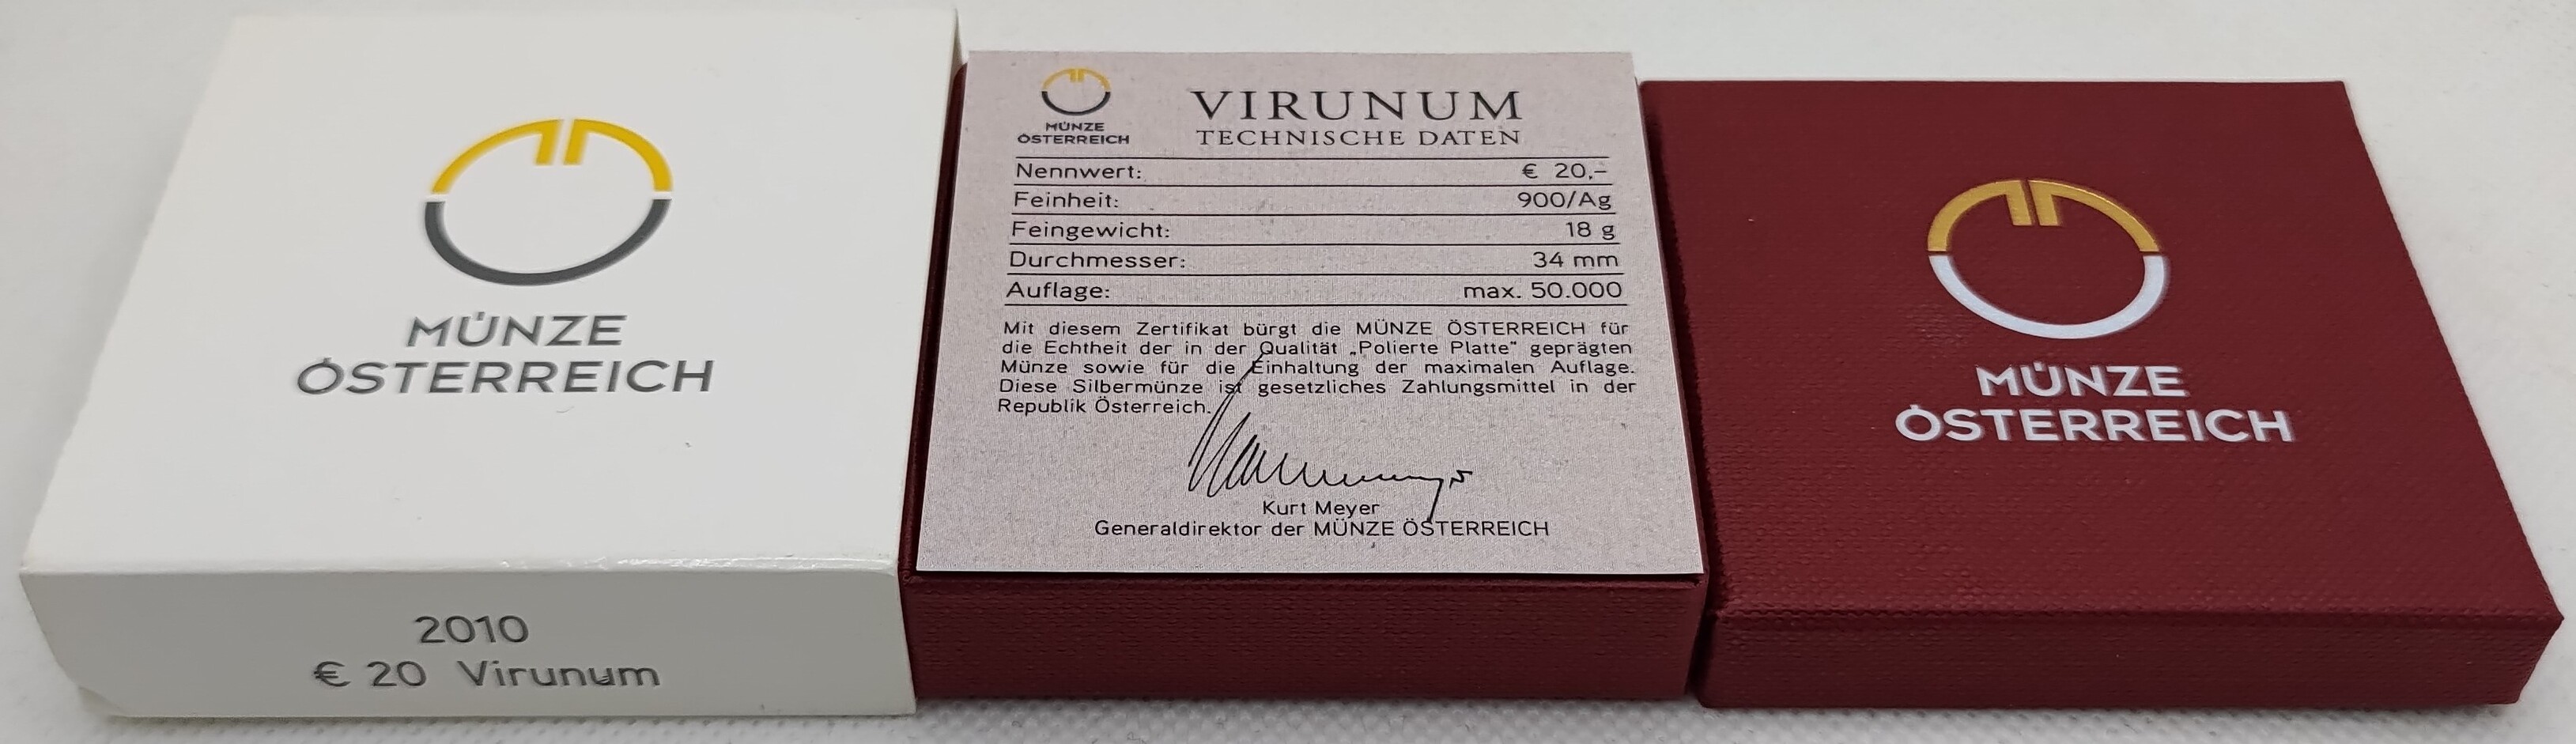 MÜNZE
ÖSTERREICH
2010
€ 20 Virunum
MÜNZE
ÖSTERREICH
VIRUNUM
TECHNISCHE DATEN
Nennwert: € 20,–
Feinheit: 900/Ag
Feingewicht: 18 g
Durchmesser: 34 mm
Auflage: max. 50.000
Mit diesem Zertifikat bürgt die MÜNZE ÖSTERREICH für
die Echtheit der in der Qualität „Polierte Platte" geprägten
Münze sowie für die Einhaltung der maximalen Auflage.
Diese Silbermünze ist gesetzliches Zahlungsmittel in der
Republik Österreich.
Kurt Meyer
Generaldirektor der MÜNZE ÖSTERREICH
MÜNZE
ÖSTERREICH